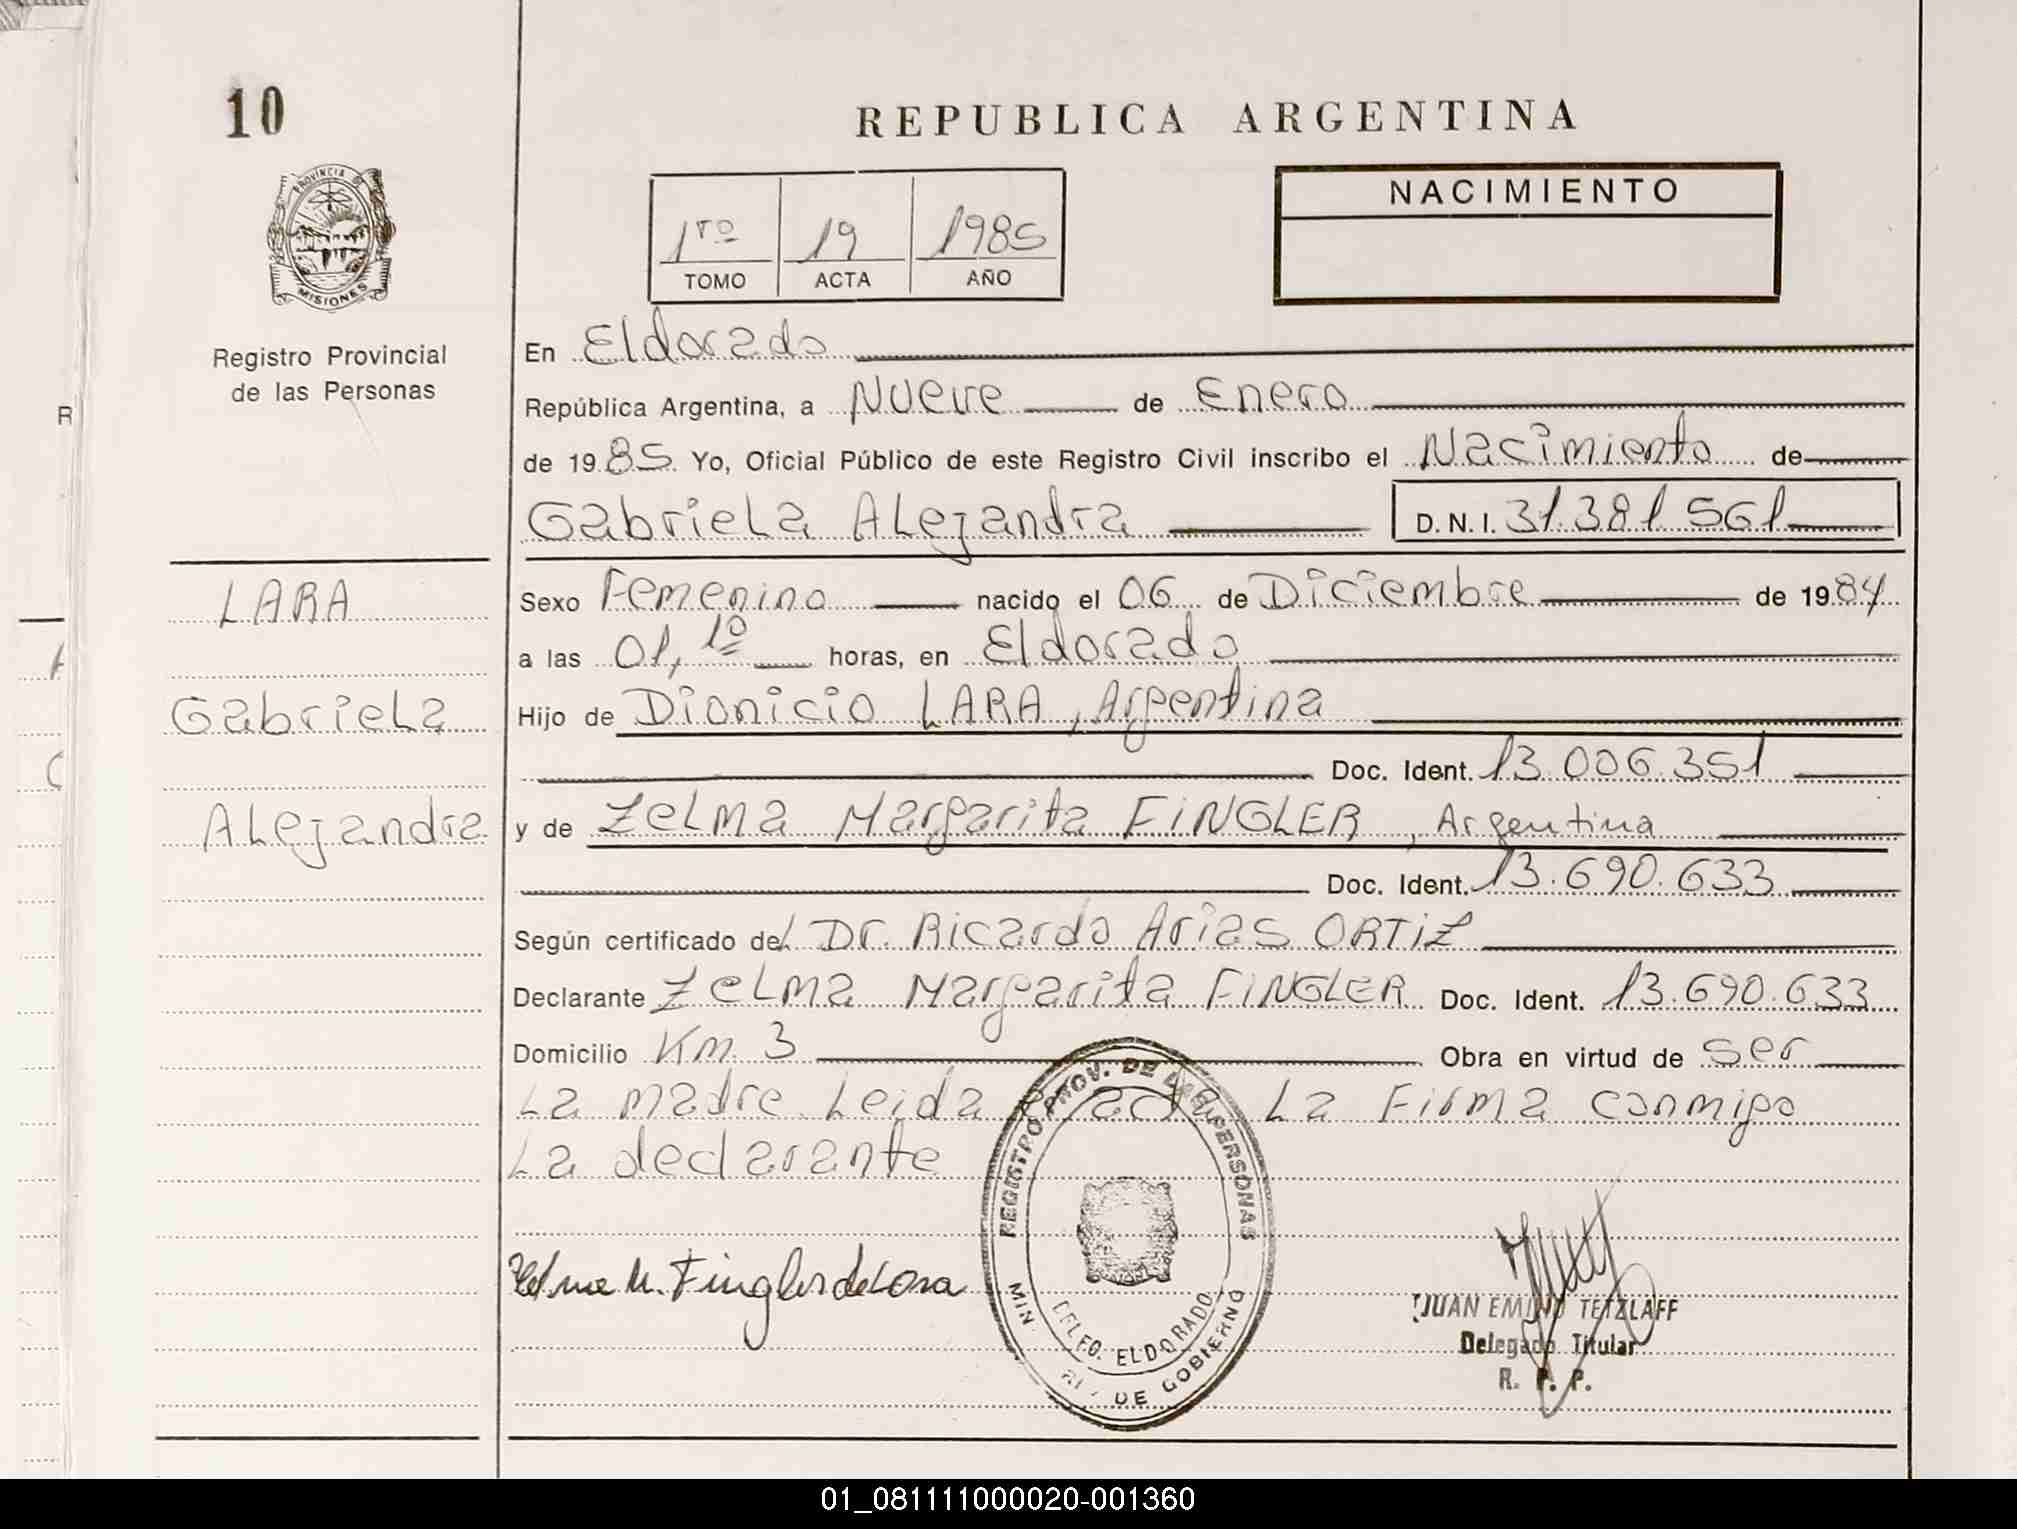 10
REPUBLICA ARGENTINA
PROVINCIA DE
MISIONES
Registro Provincial
de las Personas
1ro 19 1985
TOMO ACTA AÑO
NACIMIENTO
En Eldorado
República Argentina, a Nueve de Enero
de 1985 Yo, Oficial Público de este Registro Civil inscribo el Nacimiento de
Gabriela Alejandra D.N.I. 31.381.561
LARA
Gabriela
Alejandra
Sexo Femenino nacido el 06 de Diciembre de 1984
a las 01,10 horas, en Eldorado
Hijo de Dionicio LARA, Argentina
Doc. Ident. 13.006.351
y de Zelma Margarita FINGLER, Argentina
Doc. Ident. 13.690.633
Según certificado del Dr. Ricardo Arias ORTIZ
Declarante Zelma Margarita FINGLER Doc. Ident. 13.690.633
Domicilio Km. 3 Obra en virtud de ser
La madre Leida el acta La Firma conmigo
La declarante
Zelma M. Fingler de Lara
REGISTRO PROV. DE LAS PERSONAS
DELEG. ELDORADO
MIN. DE GOBIERNO
JUAN EMILIO TETZLAFF
Delegado Titular
R. P. P.
01_081111000020-001360